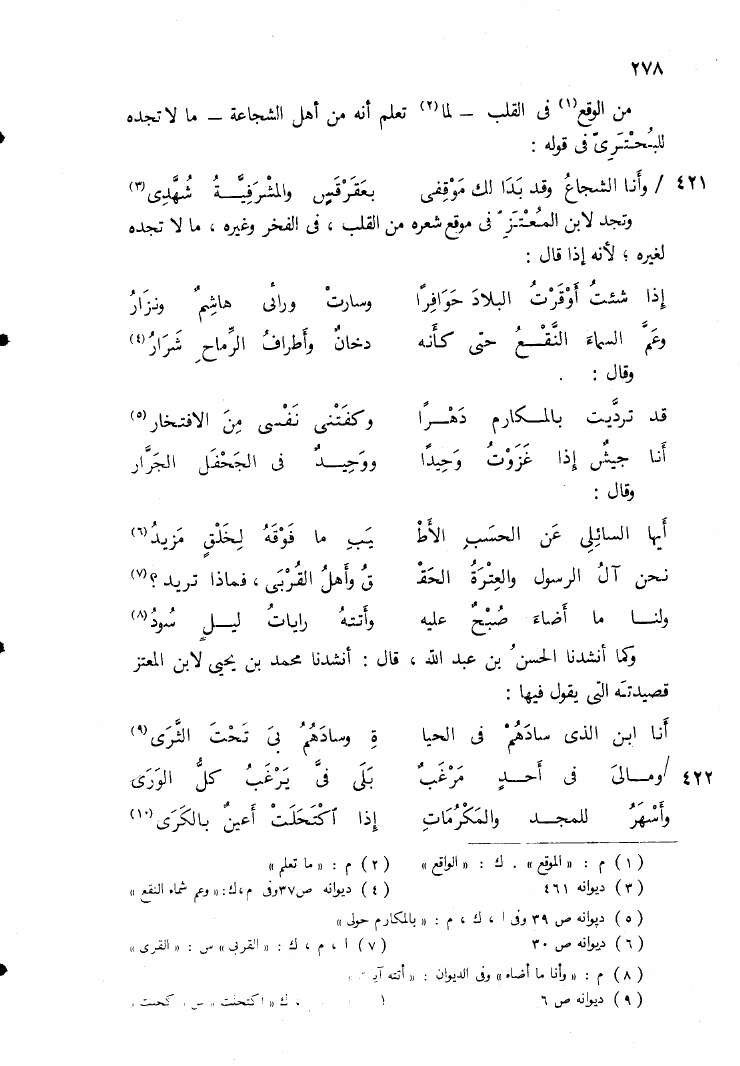 ٢٧٨
من الوقع(١) فى القلب – لما(٢) تعلم أنه من أهل الشجاعة – ما لا تجده
للبُحْتَرِىّ فى قوله :
٤٢١ / وأنا الشجاعُ وقد بَدَا لك مَوْقِفى بعَقَرْقَسٍ والمشْرَفيَّـــةُ شُهَّدِى(٣)
وتجد لابن المُعْتَزِ فى موقع شعره من القلب ، فى الفخر وغيره ، ما لا تجده
لغيره ؛ لأنه إذا قال :
إِذا شئتُ أَوْقَرْتُ البلادَ حَوَافِرًا وسارتْ ورائى هاشِمٌ ونزارُ
وعَمَّ السماءَ النَّقْــعُ حتى كأنه دخانٌ وأطرافُ الرِّماحِ شَرَارُ(٤)
وقال :
قد تردَّيت بالمكارم دَهْــرًا وكفَتْنى نَفْسى مِنَ الافتخار(٥)
أنا جيشٌ إذا غَزَوْتُ وَحِيدًا ووَحِيــدٌ فى الجَحْفَل الجَرَّار
وقال :
أيها السائلِى عَن الحسَبِ الأَطْ يَبِ ما فَوْقَهُ لِخَلْقٍ مَزيدُ(٦)
نحن آلُ الرسول والعِتْرَةُ الحَقْ قُ وأهلُ القُرْبَى ، فماذا تريد ؟(٧)
ولنــا ما أَضاءَ صُبْحٌ عليه وأتتهُ راياتُ ليــلٍ سُودُ(٨)
وكما أنشدنا الحسنُ بن عبد الله ، قال : أنشدنا محمد بن يحيى لابن المعتز
قصيدتَه التى يقول فيها :
أنا ابن الذى سادَهُمْ فى الحيا ةِ وسادَهُمُ بىَ تَحْتَ الثَّرَى(٩)
٤٢٢ / ومــالىَ فى أحــدٍ مَرْغَبٌ بَلَى فىَّ يَرْغَبُ كلُّ الوَرَى
وأَسْهَرُ للمجــد والمَكْرُمَاتِ إذا اكْتَحَلَتْ أَعينٌ بالكَرَى(١٠)
(١) م : «الموقع» . ك : «الواقع» (٢) م : «ما تعلم»
(٣) ديوانه ٤٦١ (٤) ديوانه ص٣٧وفى م،ك: «وعم شماء النقع»
(٥) ديوانه ص ٣٩ وفى ا ، ك ، م : «بالمكارم حولى»
(٦) ديوانه ص ٣٠ (٧) ا ، م ، ك : «القربى» س : «القرى»
(٨) م : «وأنا ما أضاء» وفى الديوان : «أتته
(٩) ديوانه ص ٦ ، ك «اكتحلت» س